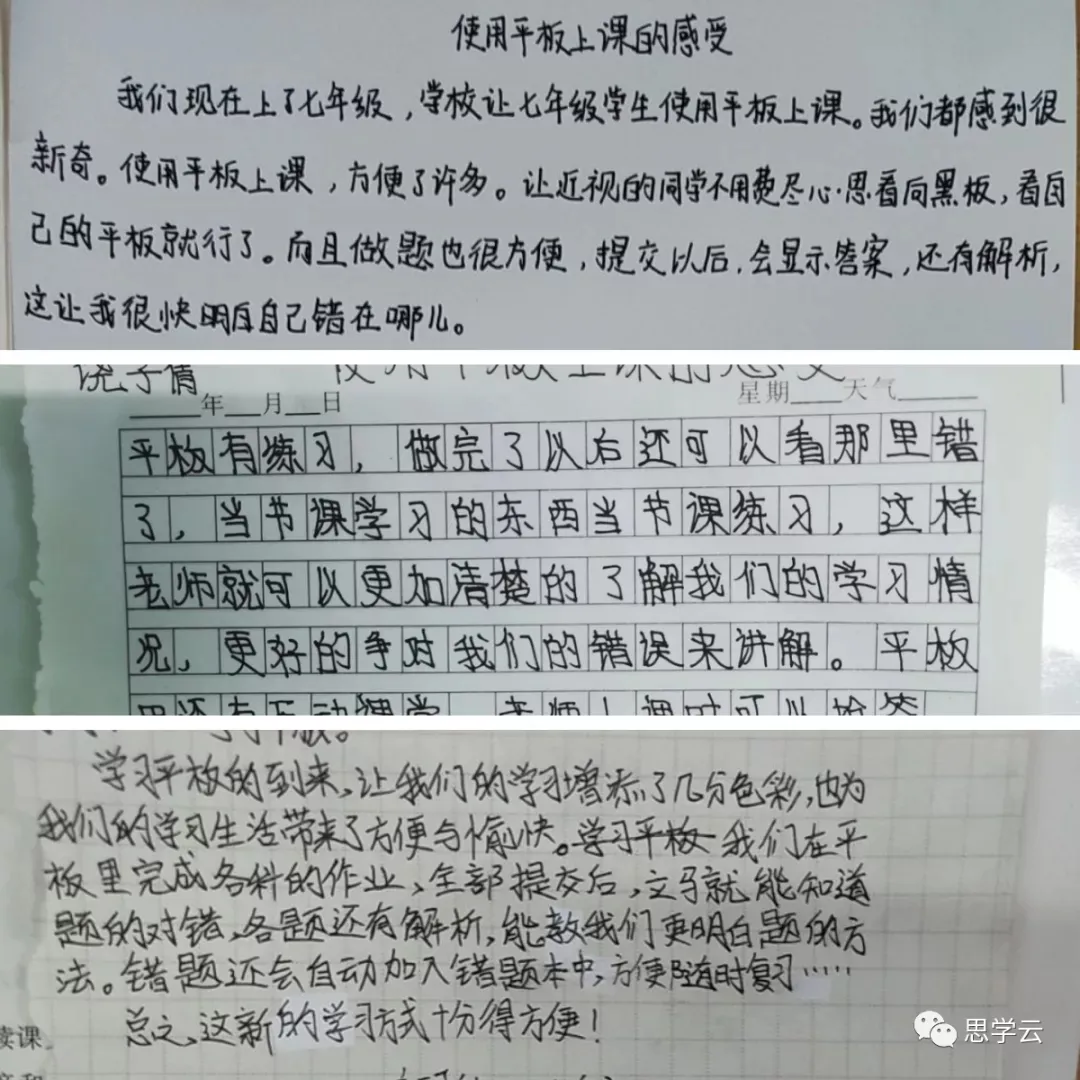 使用平板上课的感受
我们现在上了七年级，学校让七年级学生使用平板上课。我们都感到很
新奇。使用平板上课，方便了许多。让近视的同学不用费尽心思看向黑板，看自
己的平板就行了。而且做题也很方便，提交以后，会显示答案，还有解析，
这让我很快明白自己错在哪儿。
使用平板上课的感受
年 月 日 星期 天气
平板有练习，做完了以后还可以看那里错
了，当节课学习的东西当节课练习，这样
老师就可以更加清楚的了解我们的学习情
况，更好的争对我们的错误来讲解。平板
里还有互动课堂，老师上课时可以抢答
学习平板的到来，让我们的学习增添了几分色彩，也为
我们的学习生活带来了方便与愉快。学习平板 我们在平
板里完成各科的作业，全部提交后，立马就能知道
题的对错，各题还有解析，能教我们更明白题的方
法。错题还会自动加入错题本中，方便随时复习……
总之，这新的学习方式十分得方便！
读课
思学云